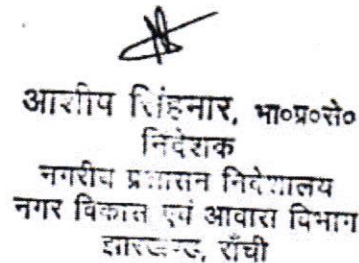 आशीष सिंहमार, भा०प्र०से०
निदेशक
नगरीय प्रशासन निदेशालय
नगर विकास एवं आवास विभाग
झारखण्ड, राँची